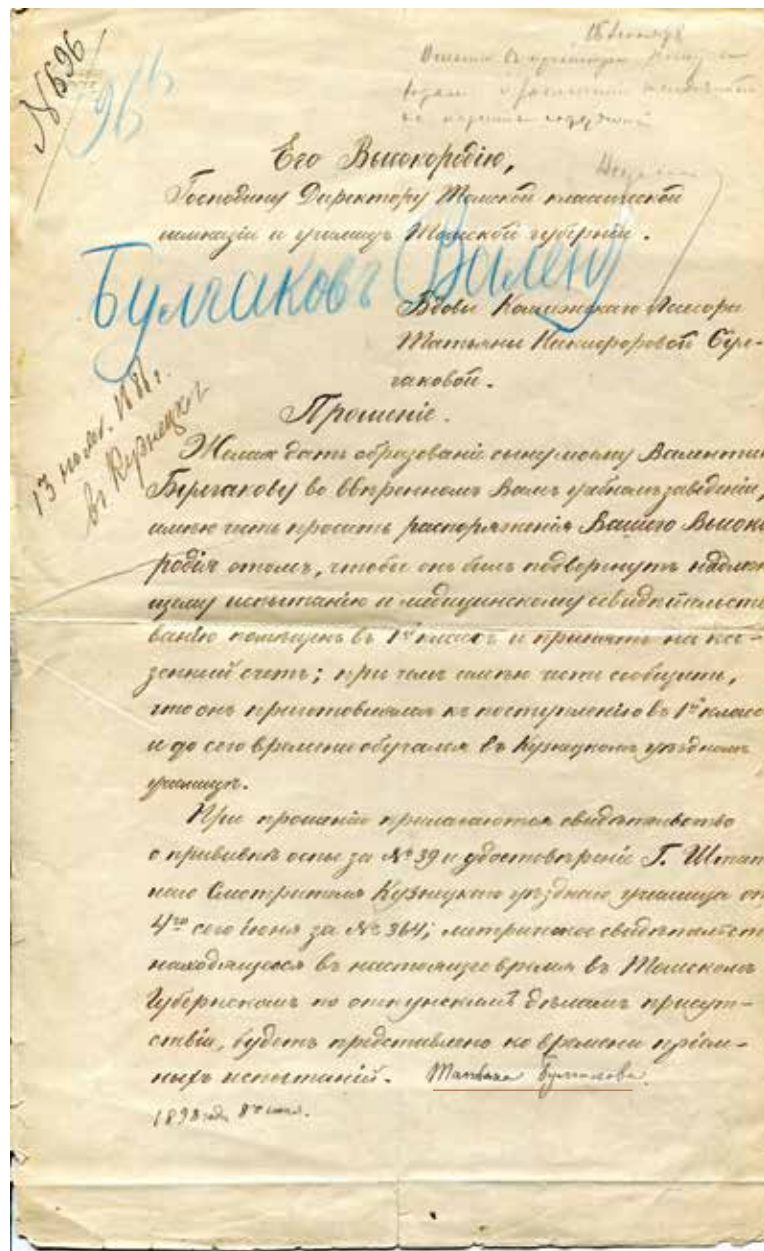 № 696
966
Его Высокородію,
Господину Директору Томской классической
гимназіи и училищъ Томской губерніи.
Булгаковъ Вален
Вдовы Коллежскаго Ассесора
Татьяны Никифоровой Бул-
гаковой.
13 нояб. 1886 г.
въ Кузнецкѣ
Прошеніе.
Желая дать образованіе сыну моему Валентин
Булгакову во ввѣренномъ Вамъ учебномъ заведеніи,
имѣю честь просить распоряженія Вашего Высоко
родія отомъ, чтобы онъ былъ подвергнутъ надлеж
щему испытанію и медицинскому свидѣтельств
ванію помѣщенъ въ 1й классъ и принятъ на ка-
зенный счетъ; при чемъ имѣю честь сообщить,
что онъ приготовлялся къ поступленію въ 1й класс
и до сего времени обучался въ Кузнецкомъ уѣздномъ
училищѣ.
При прошеніи прилагаются свидѣтельство
о прививкѣ оспы за № 39 и удостовѣреніе Г. Штат
наго Смотрителя Кузнецкаго уѣзднаго училища от
4го сего іюня за № 364; метрическое свидѣтельст
находящееся въ настоящее время въ Томскомъ
Губернскомъ по опекунскимъ дѣламъ присут-
ствіи, будетъ представлено ко времени пріем-
ныхъ испытаній. Татьяна Булгакова.
1898 года 8го